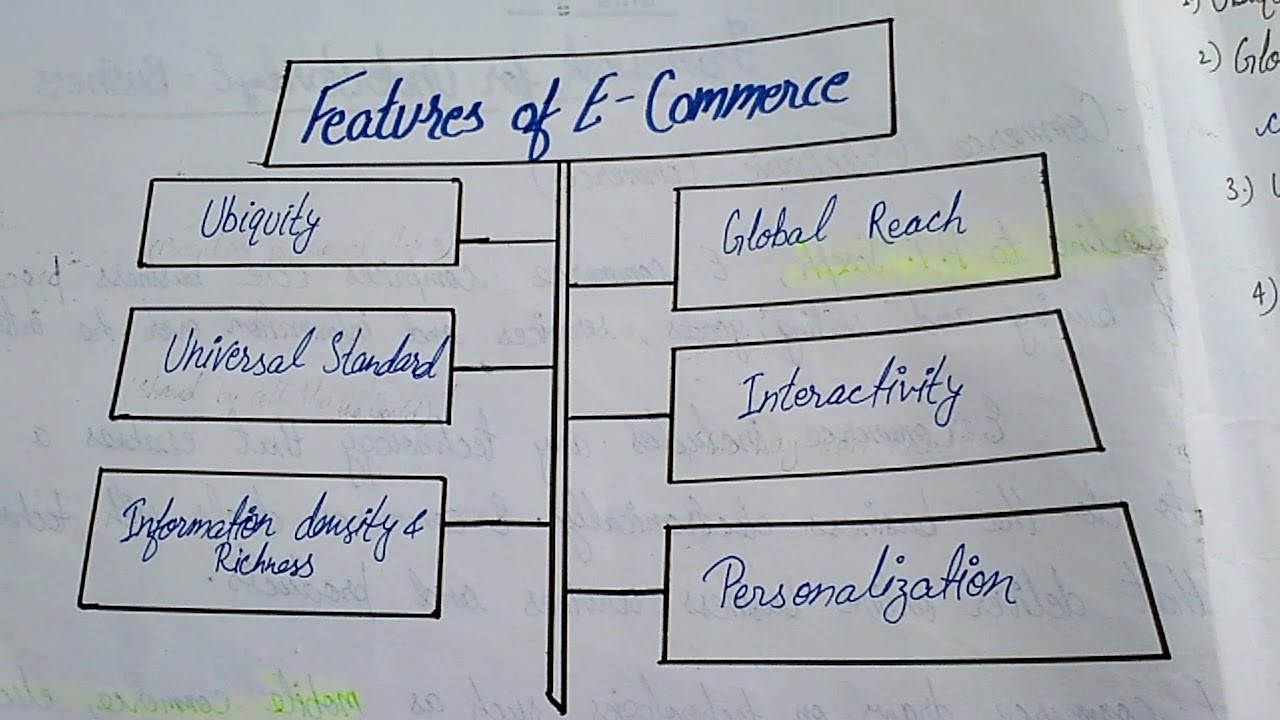 Features of E-Commerce
Ubiquity
Global Reach
Universal Standard
Interactivity
Information density &
Richness
Personalization
2) Glo
3.)
4)